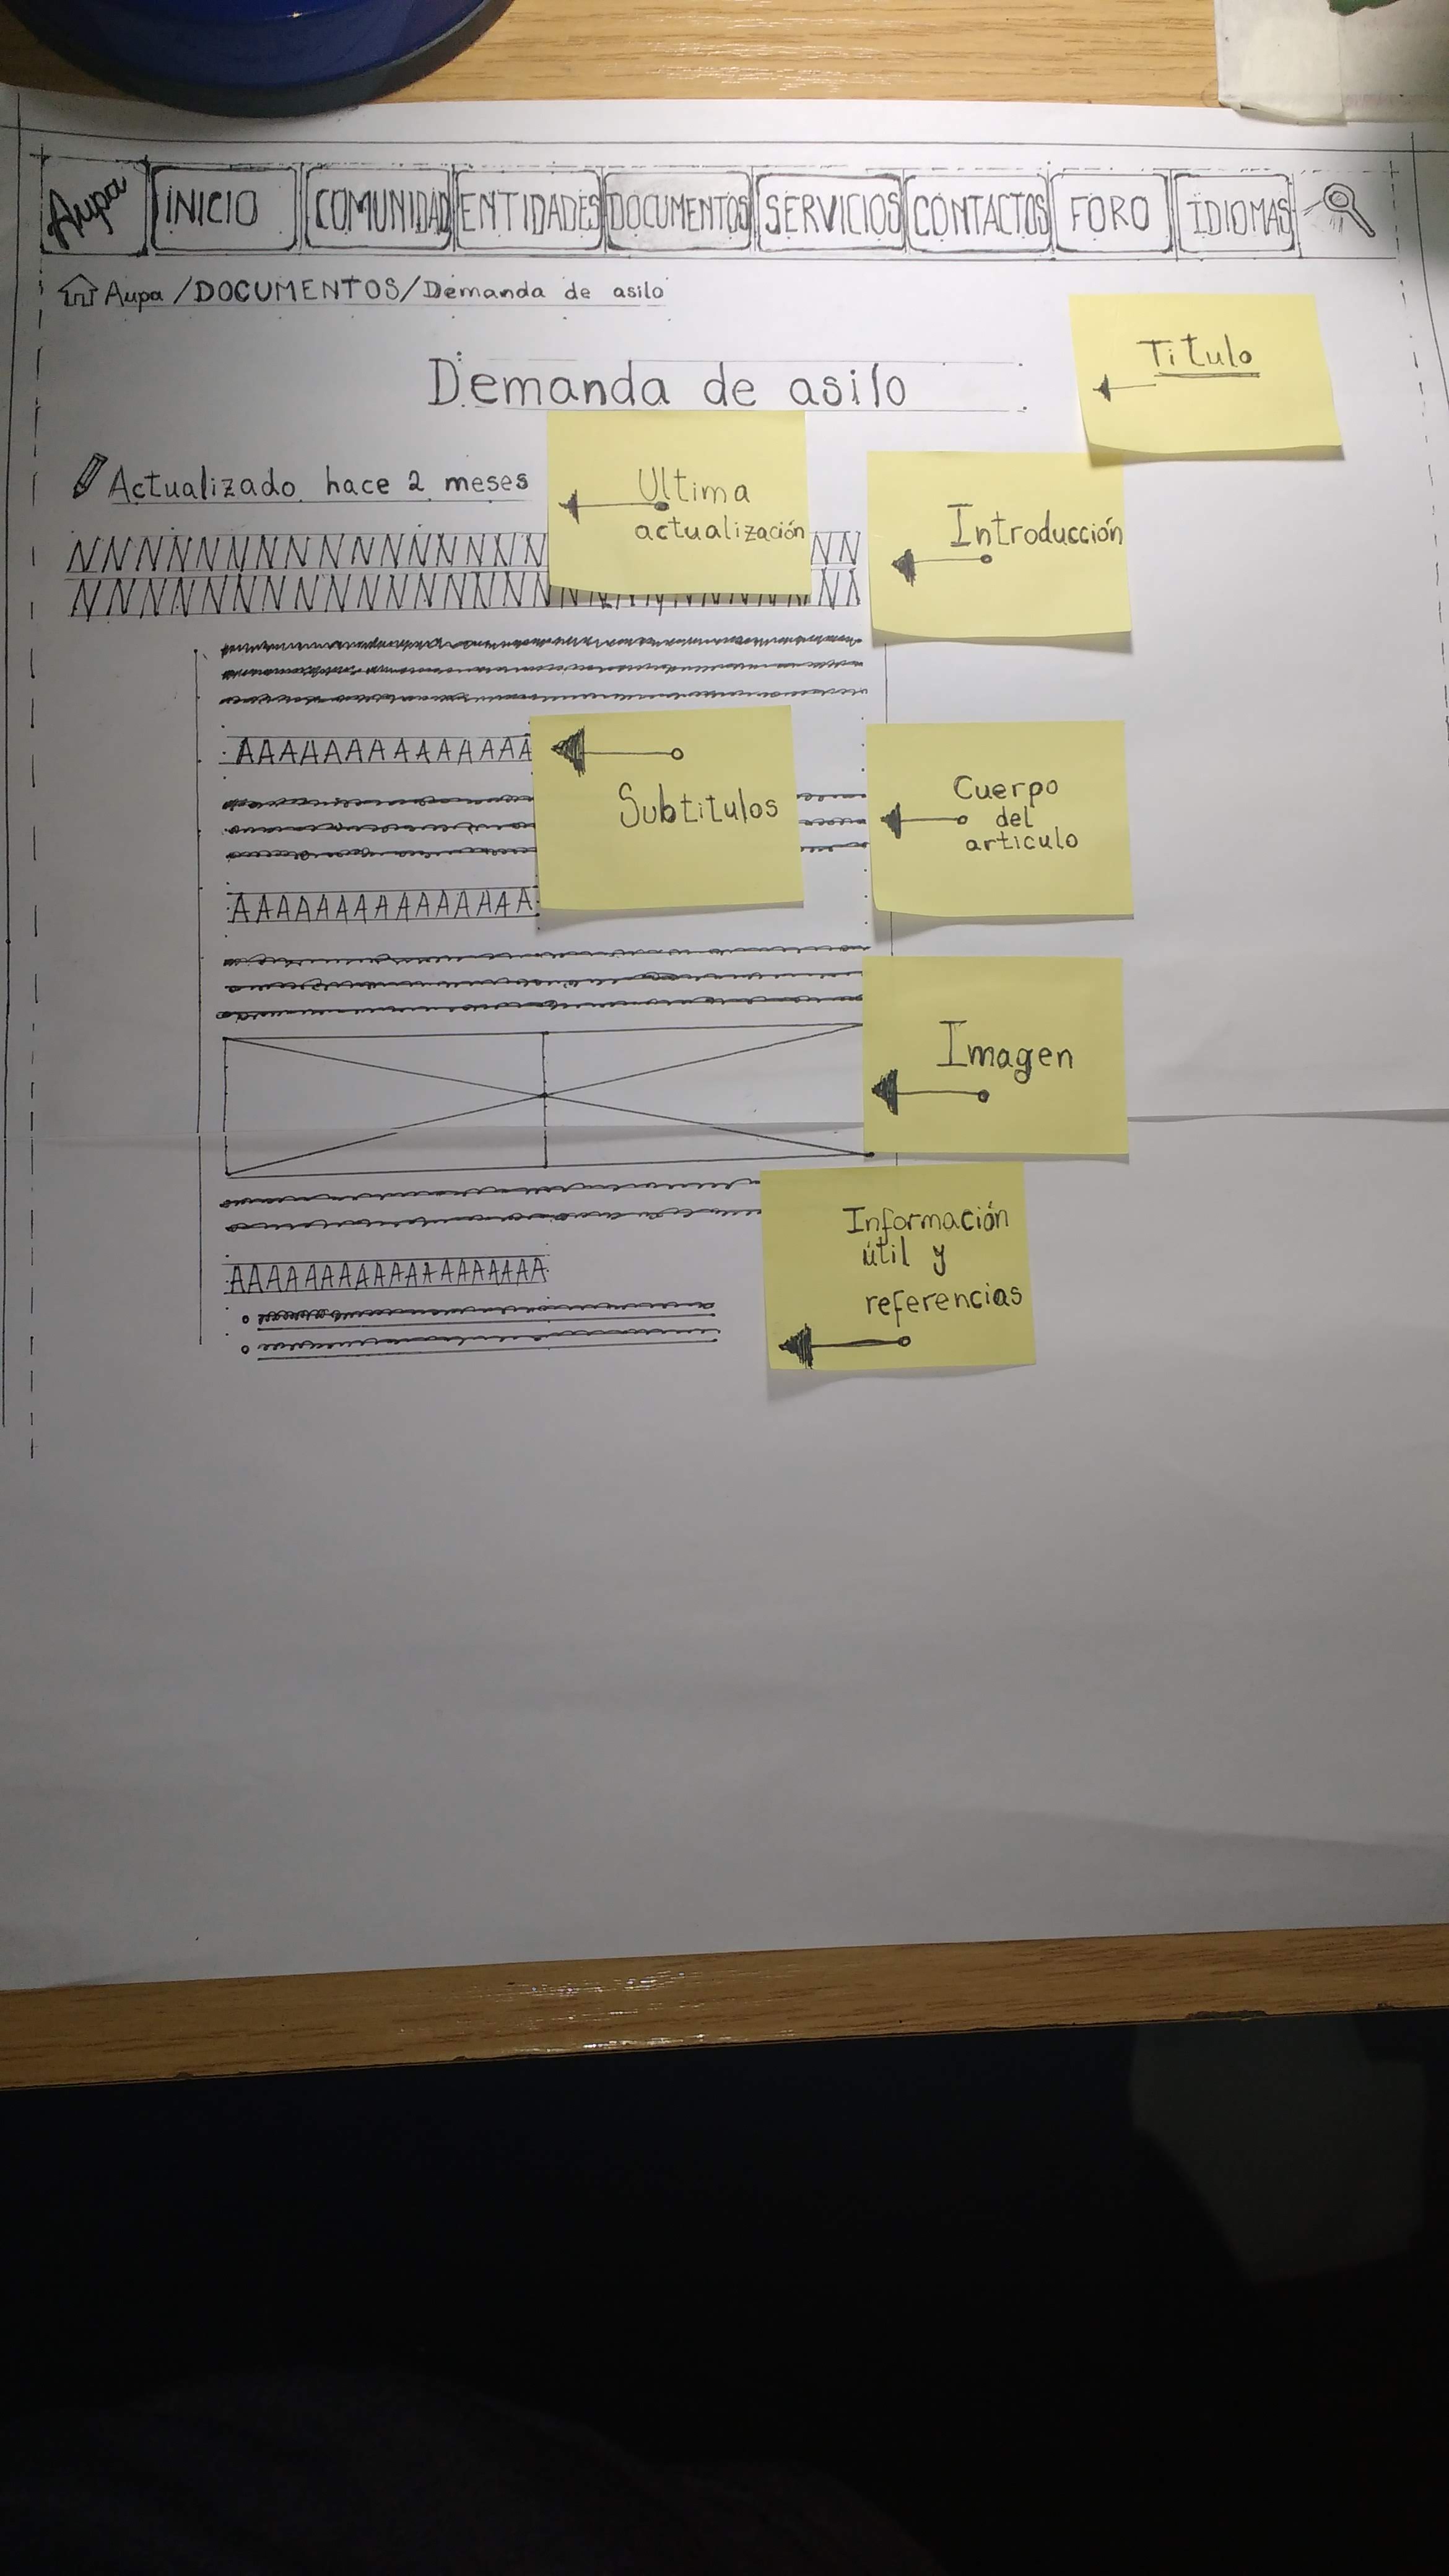 Aupa INICIO COMUNIDAD ENTIDADES DOCUMENTOS SERVICIOS CONTACTOS FORO IDIOMAS
Aupa /DOCUMENTOS/Demanda de asilo
Titulo
Demanda de asilo
Actualizado hace 2 meses
Ultima
actualización
Introducción
NNNNNNNNNNNNNNNN
NNNNNNNNNNNNNNNN
AAAAAAAAAAAAAA
Subtitulos
Cuerpo
del
articulo
AAAAAAAAAAAAAAA
Imagen
Información
útil y
referencias
AAAAAAAAAAAAAAAAA